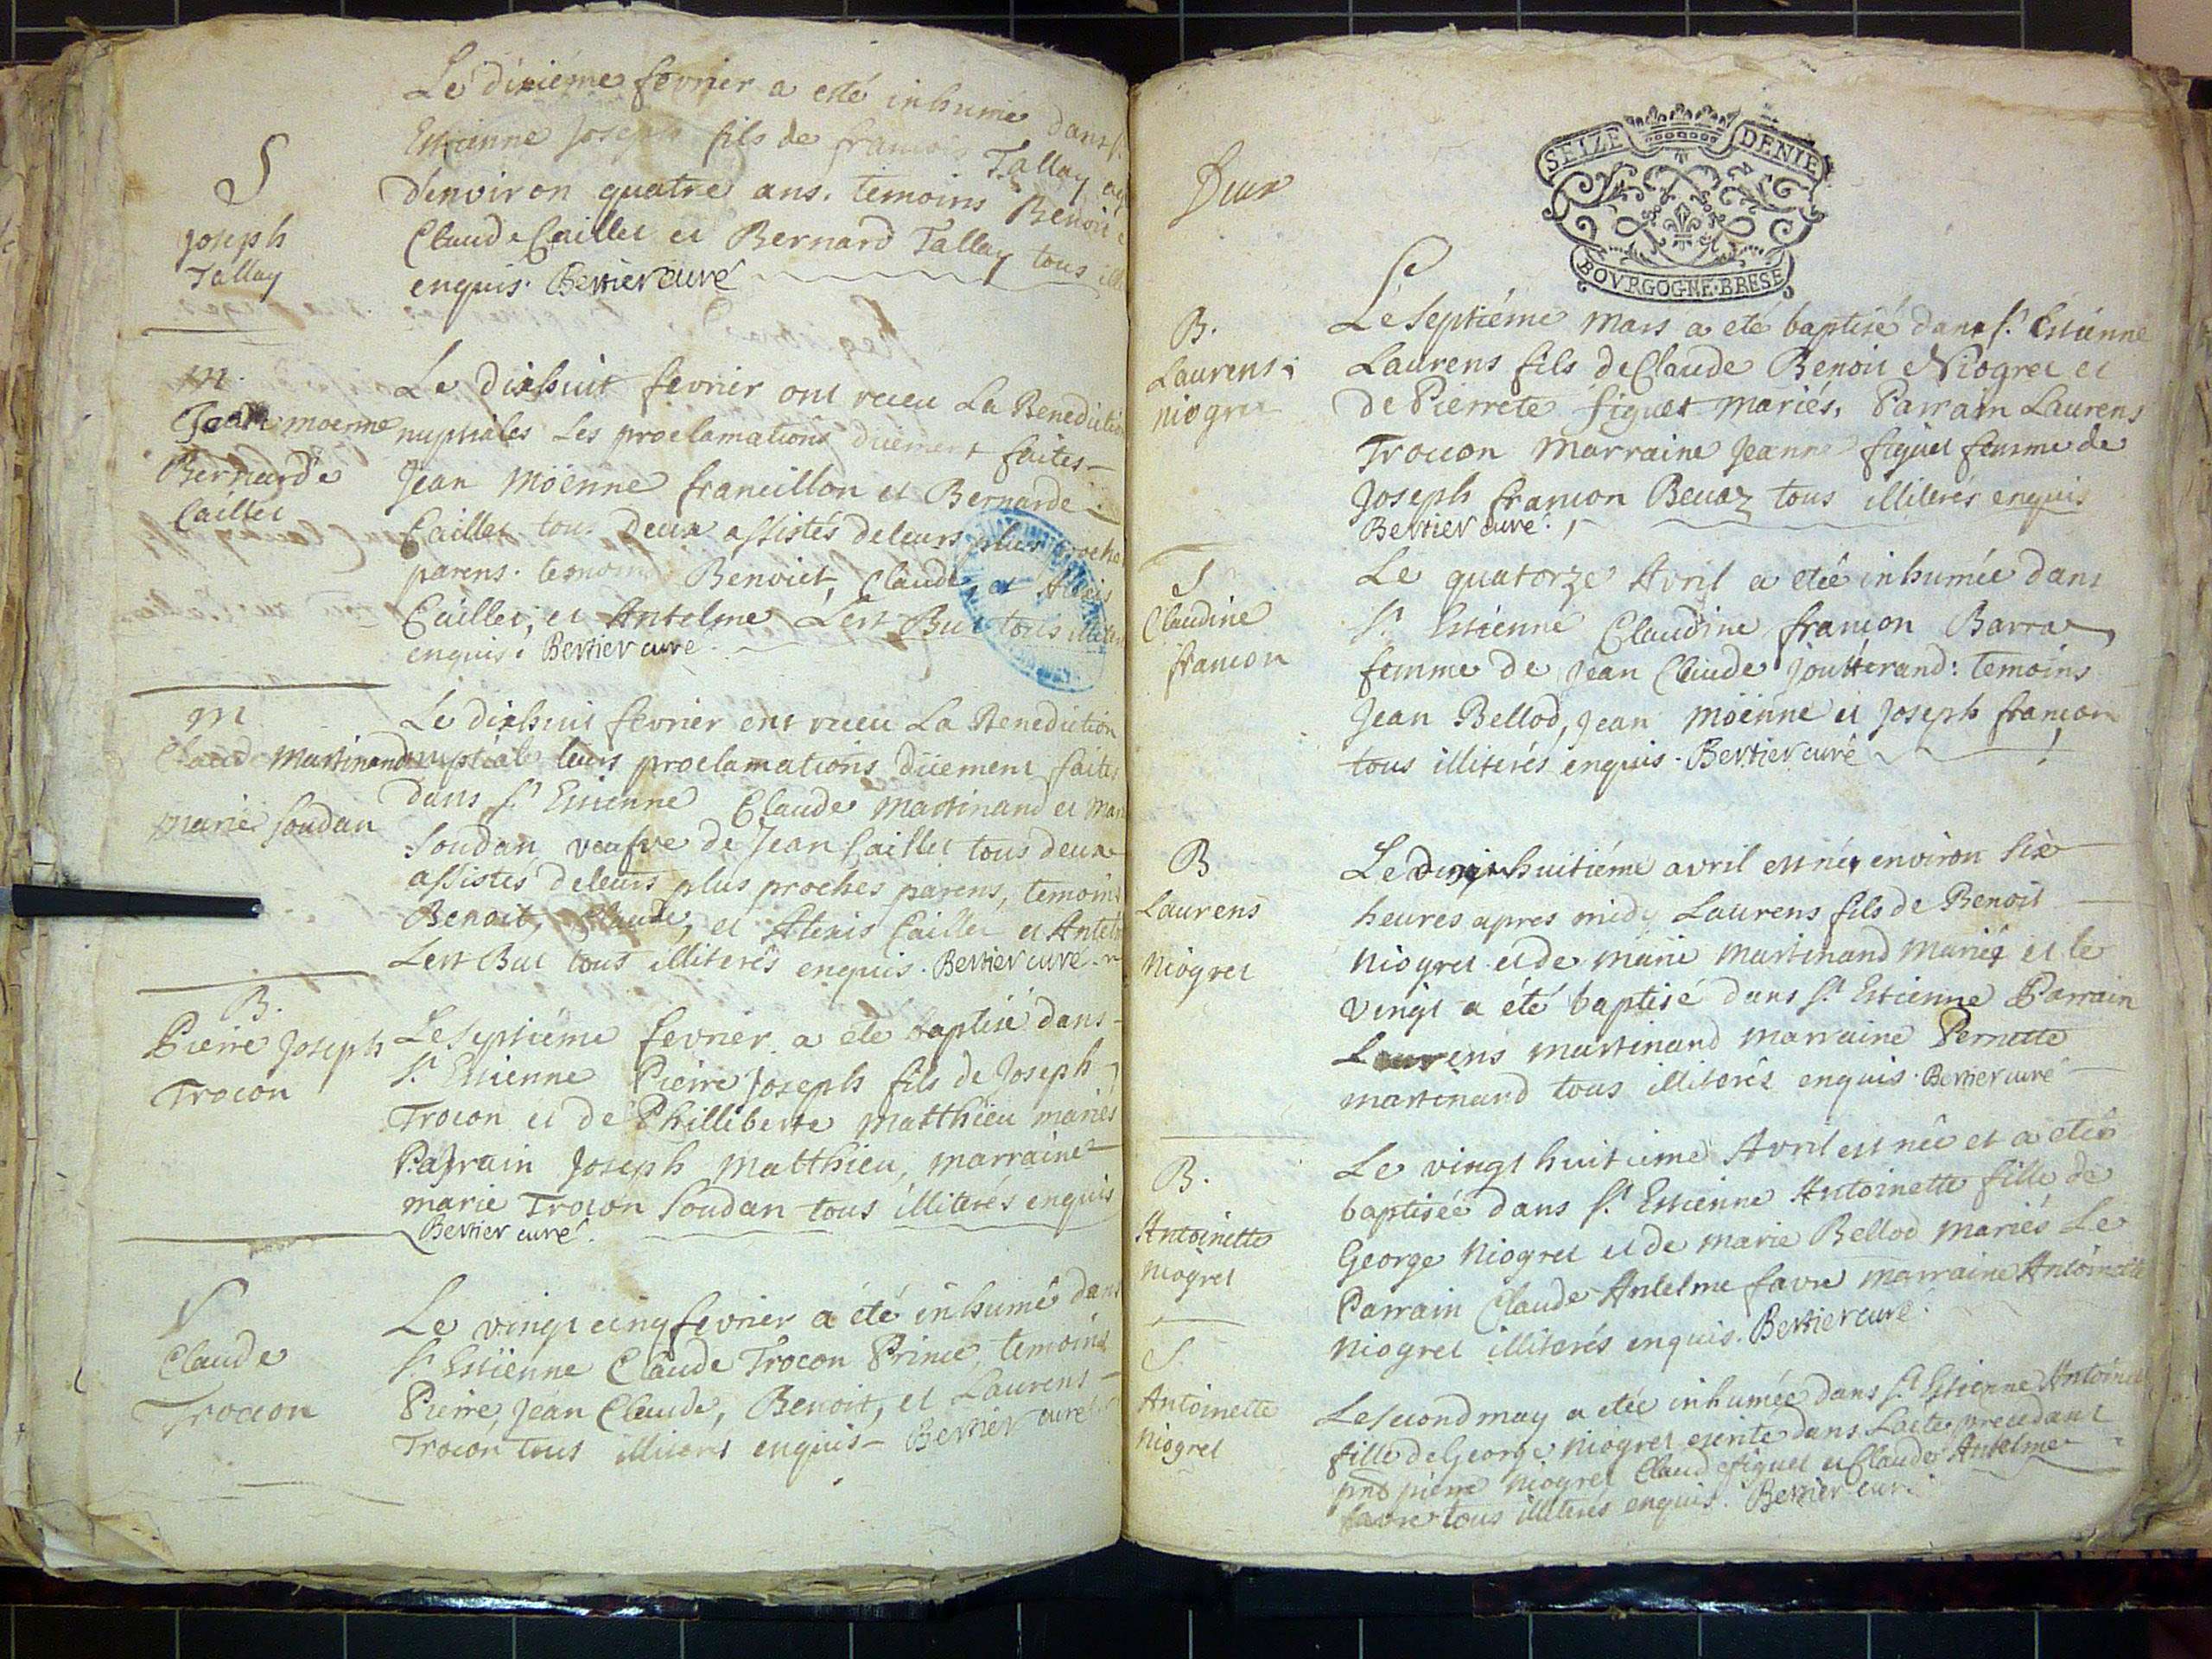 Le dixiéme fevrier a esté inhumé dans St
Estienne Joseph fils de francois Tallay agé
d'environ quatre ans. temoins Benoit
Claude Caillet et Bernard Tallay tous
enquis. Bertier curé
S
Joseph
Tallay
m.
Jean moenne
Bernarde
Caillet
Le dixhuit fevrier ont receu La Benediction
nuptiales Les proclamations düement faites
Jean Möenne francillon et Bernarde
Caillet tous Deux assistés de leurs plus proches
parens. temoins Benoict, Claude, et Alexis
Caillet, et Antelme Lert But tous
enquis. Bertier curé.
m
Claude Martinand
marie soudan
Le dixhuit fevrier ont receu La Benediction
nuptiale leurs proclamations düement faites
dans St Estienne Claude martinand et Marie
Soudan veufve de Jean Caillet tous deux
assistés de leurs plus proches parens, temoins
Benoit, Claude, et Alexis Caillet et Antelme
Lert But tous illiterés enquis. Bertier curé
B.
Pierre Joseph
Trocon
Le septiéme fevrier a été baptisé dans
St Estienne Pierre Joseph fils de Joseph
Trocon et de Philliberte Matthieu mariés
Parrain Joseph Matthieu, marraine
marie Trocon Soudan tous illiterés enquis
Bertier curé.
S
Claude
Trocon
Le vingt cinq fevrier a été inhumé dans
St Estïenne Claude Trocon Prince, temoins
Pierre, Jean Claude, Benoit, et Laurens
Trocon tous illiterés enquis Bertier curé
Deux
SEIZE DENIE
BOVRGOGNE·BRESE
B.
Laurens
niogret
Le Septiéme Mars a eté baptisé dans St. Estienne
Laurens fils de Claude Benoit Niogret et
de Pierrete figuet mariés. Parrain Laurens
Trocon Marraine Jeanne figuet femme de
Joseph francon Beuaz tous illiterés enquis
Bertier curé.
S
Claudine
francon
Le quatorze Avril a etée inhumée dans
St Estienne Claudine francon Barra
femme de Jean Claude Joutterand: temoins
Jean Bellod, Jean Möenne et Joseph francon
tous illiterés enquis. Bertier curé
B
Laurens
Niogret
Le huitiéme avril est né environ six
heures apres midy Laurens fils de Benoit
Niogret et de marie Martinand Mariés et le
vingt a été baptisé dans St. Estienne Parrain
Laurens martinand marraine Pernette
martinand tous illiterés enquis. Bertier curé
B.
Antoinette
niogret
Le vingt huitieme Avril est née et a etée
baptisée dans St Estienne Antoinette fille de
George Niogret et de Marie Bellod mariés Le
Parrain Claude Antelme favre marraine Antoinette
Niogret illiterés enquis. Bertier curé.
S.
Antoinette
Niogret
Le second may a etée inhumée dans St Estienne Antoinette
fille de George Niogret escrite dans L'acte precedant
pnts pierre Niogret Claude figuet et Claude Antelme
favre tous illiterés enquis. Bertier curé